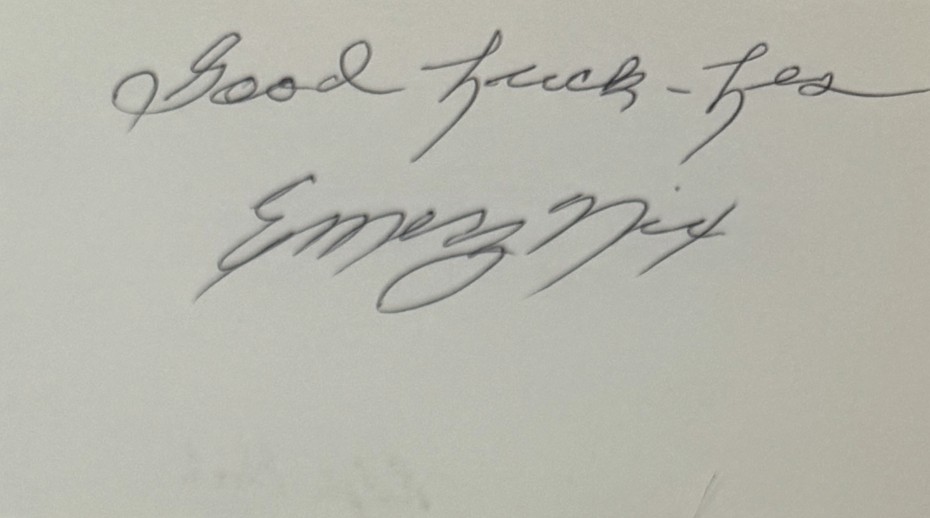 Good Luck - Les
Emery Nix